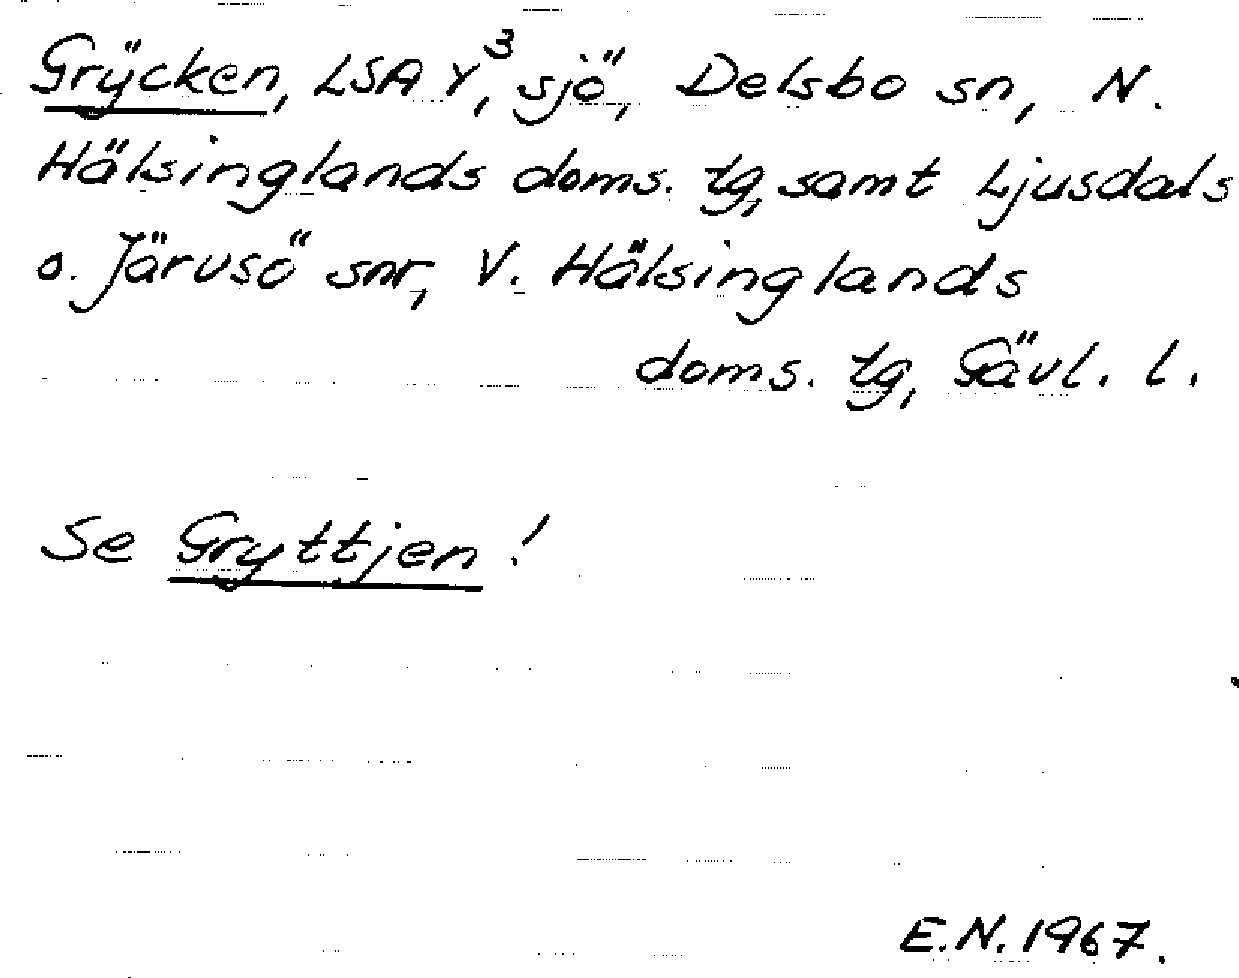 Grÿcken, LSA Y³, sjö, Delsbo sn, N.
Hälsinglands doms. tg, samt Ljusdals
o. Järvsö snr, V. Hälsinglands
doms. tg, Gävl. l.
Se Gryttjen!
E.N. 1967.